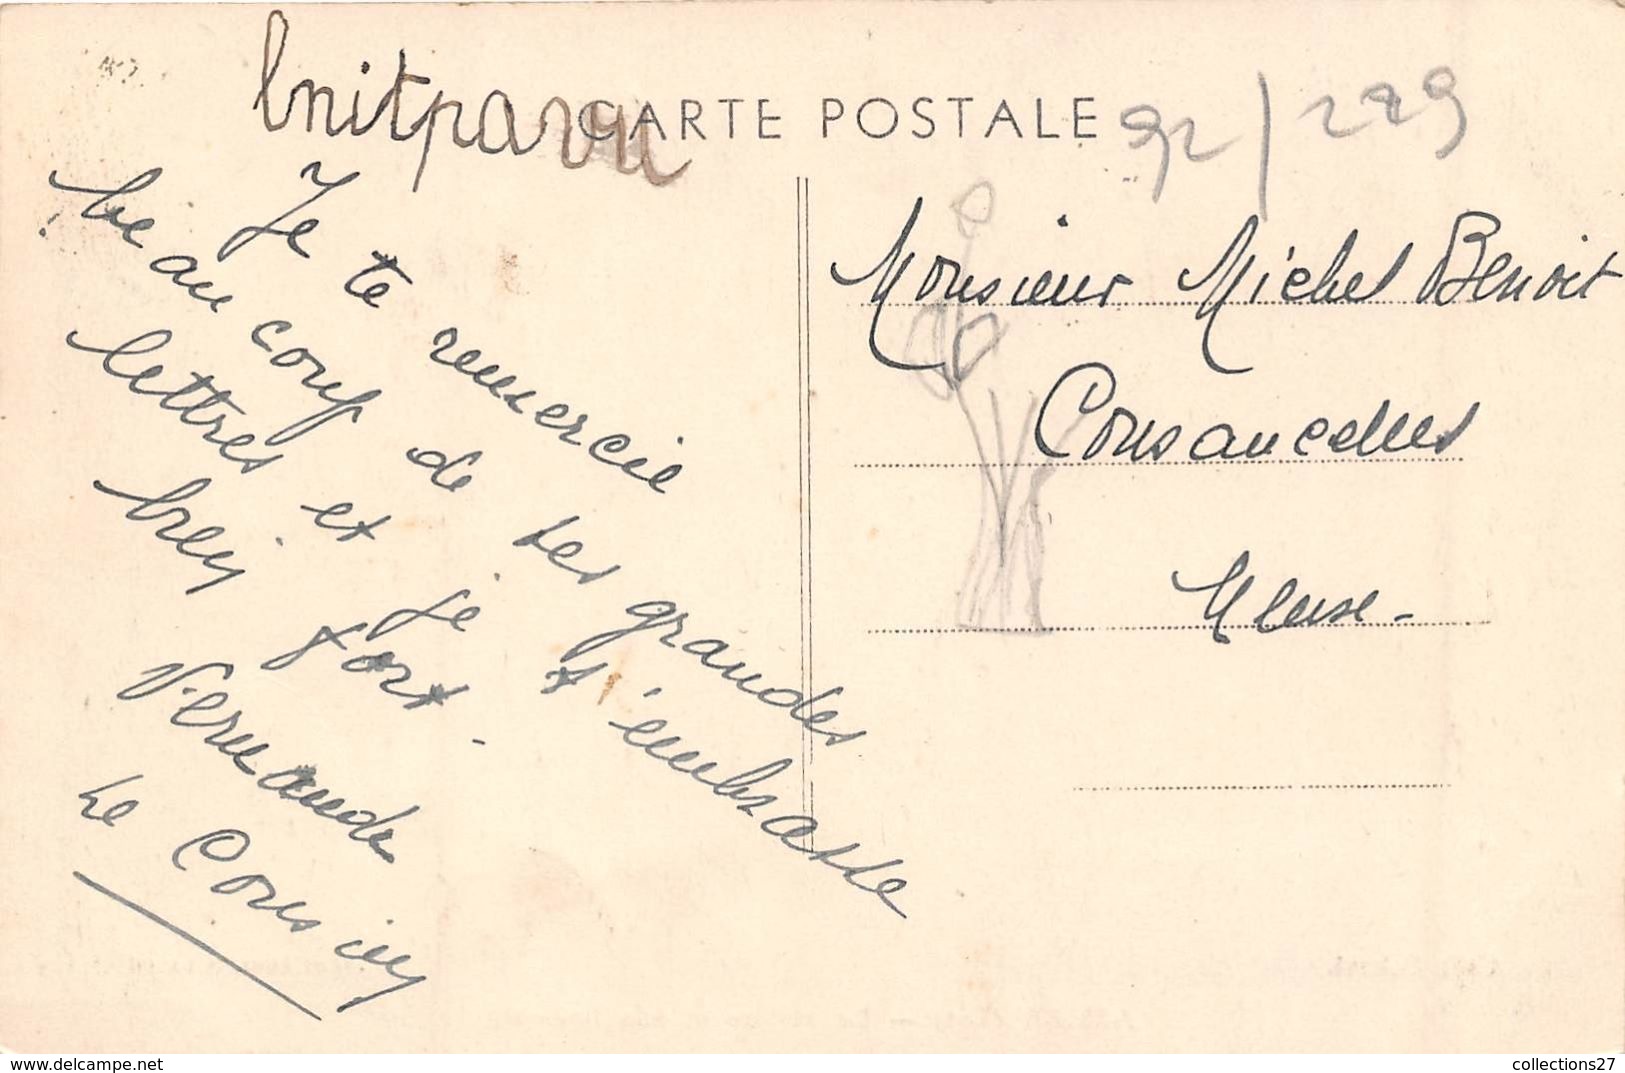 CARTE POSTALE
92/229
Je te remercie
beaucoup de tes grandes
lettres et je t'embrasse
bien fort.
Le Cousin
Monsieur Michel Benoit
Cousancelles
Meuse.
collections27